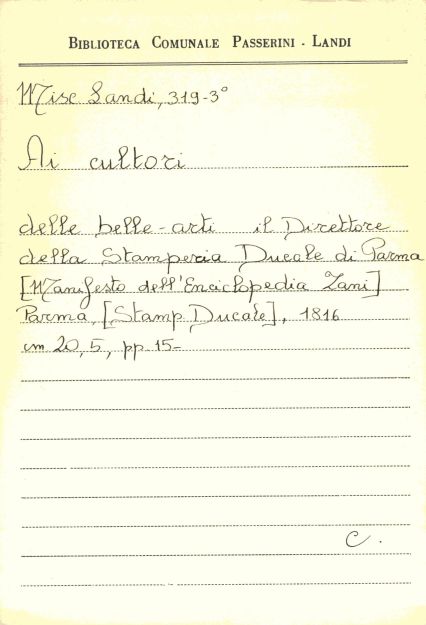 BIBLIOTECA COMUNALE PASSERINI - LANDI
Misc Landi, 319-3°
Ai cultori
delle belle-arti il Direttore
della Stamperia Ducale di Parma
[Manifesto dell'Enciclopedia Zani]
Parma, [Stamp. Ducale], 1816
cm 20,5, pp. 15-
C.